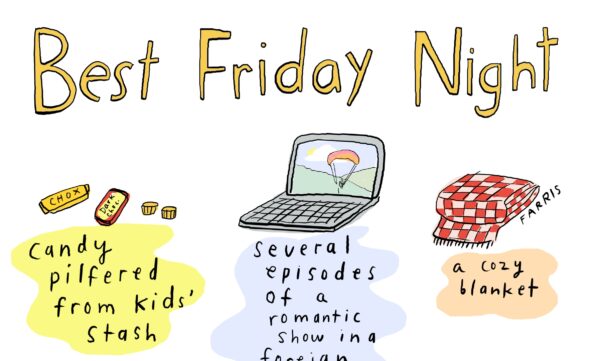 Best Friday Night
CHOX
Dark
Choc.
FARRIS
candy
pilfered
from kids'
stash
several
episodes
of a
romantic
show in a
foreign
a cozy
blanket